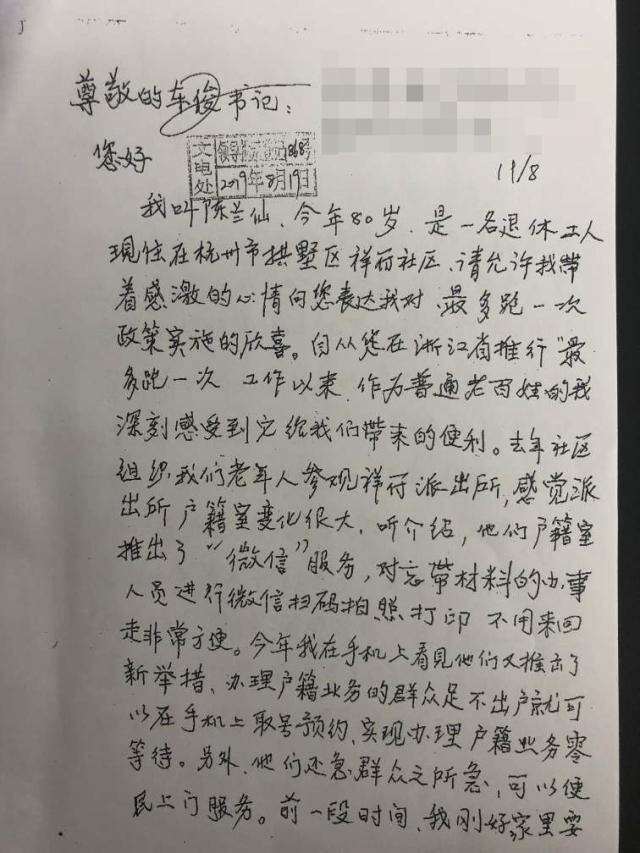 尊敬的车俊书记：
您好
文电处
2019年8月19日
19/8
我叫陈兰仙，今年80岁，是一名退休工人
现住在杭州市拱墅区祥符社区，请允许我带
着感激的心情向您表达我对，最多跑一次
政策实施的欣喜。自从您在浙江省推行“最
多跑一次 工作以来，作为普通老百姓的我
深刻感受到它给我们带来的便利。去年社区
组织我们老年人参观祥符派出所，感觉派
出所户籍室变化很大，听介绍，他们户籍室
推出了“微信”服务，对忘带材料的办事
人员进行微信扫码拍照打印 不用来回
走非常方便。今年我在手机上看见他们又推出了
新举措、办理户籍业务的群众足不出户就可
以在手机上取号预约，实现办理户籍业务零
等待。另外，他们还急群众之所急，可以便
民上门服务。前一段时间，我刚好家里要